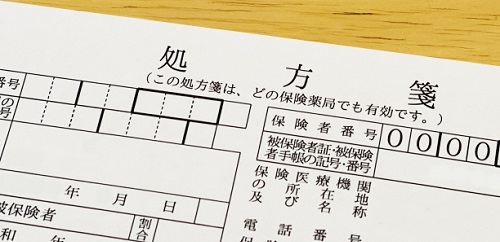 処方箋
(この処方箋は、どの保険薬局でも有効です。)
番号
の
号
保険者番号 0000
被保険者証・被保険
者手帳の記号・番号
保険医療機関
の所在地
及び名称
電話番号
年月日
被保険者
割合
和 年